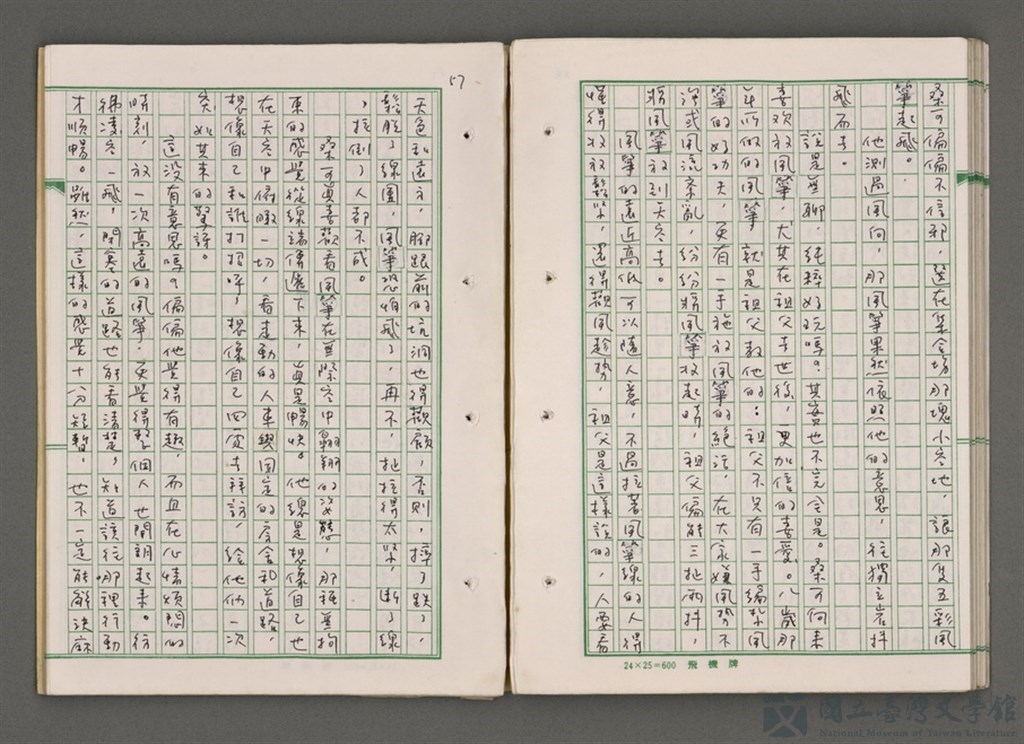 桑可偏偏不信邪，選在集合場那塊小空地，讓那隻五彩風
箏起飛。
他測過風向，那風箏果然依照他的意思，往獨立岩抖
飛而去。
說是無聊，純粹好玩嗎？其實也不完全是。桑可向來
喜歡放風箏，尤其在祖父去世後，更加倍的喜愛。八歲那
年所做的風箏，就是祖父教他的：祖父不只有一手編紮風
箏的好功夫，更有一手施放風箏的絕活，在大家嫌風勢不
強或風流紊亂，紛紛將風箏收起時，祖父偏能三扯兩抖，
將風箏放到天空去。
風箏的遠近高低可以隨人意，不過拉著風箏線的人得
懂得收放鬆緊，還得觀風趁勢，祖父是這樣說的，人要看
57
天色和遠方，腳跟前的坑洞也得觀顧，否則，摔了跌了，
鬆脫了線團，風箏恐怕飛了，再不，扯拉得太緊，斷了線
，拉倒了人都不成。
桑可真喜歡看風箏在無際空中翱翔的姿態，那種無拘
束的感覺從線端傳遞下來，真是暢快。他總是想像自己也
在天空中俯瞰一切，看走動的人車與固定的房舍和道路，
想像自己和誰打招呼，想像自己四處去拜訪，給他們一次
突如其來的驚訝。
這沒有意思嗎？偏偏他覺得有趣，而且在心情煩悶的
時刻，放一次高遠的風箏，更覺得整個人也開朗起來。彷
彿凌空一飛，閉塞的道路也能看清楚，知道該往哪裡行動
才順暢。雖然，這樣的感覺十分短暫，也不一定能解決麻
24×25=600 飛機牌
國立臺灣文學館
National Museum of Taiwan Literature